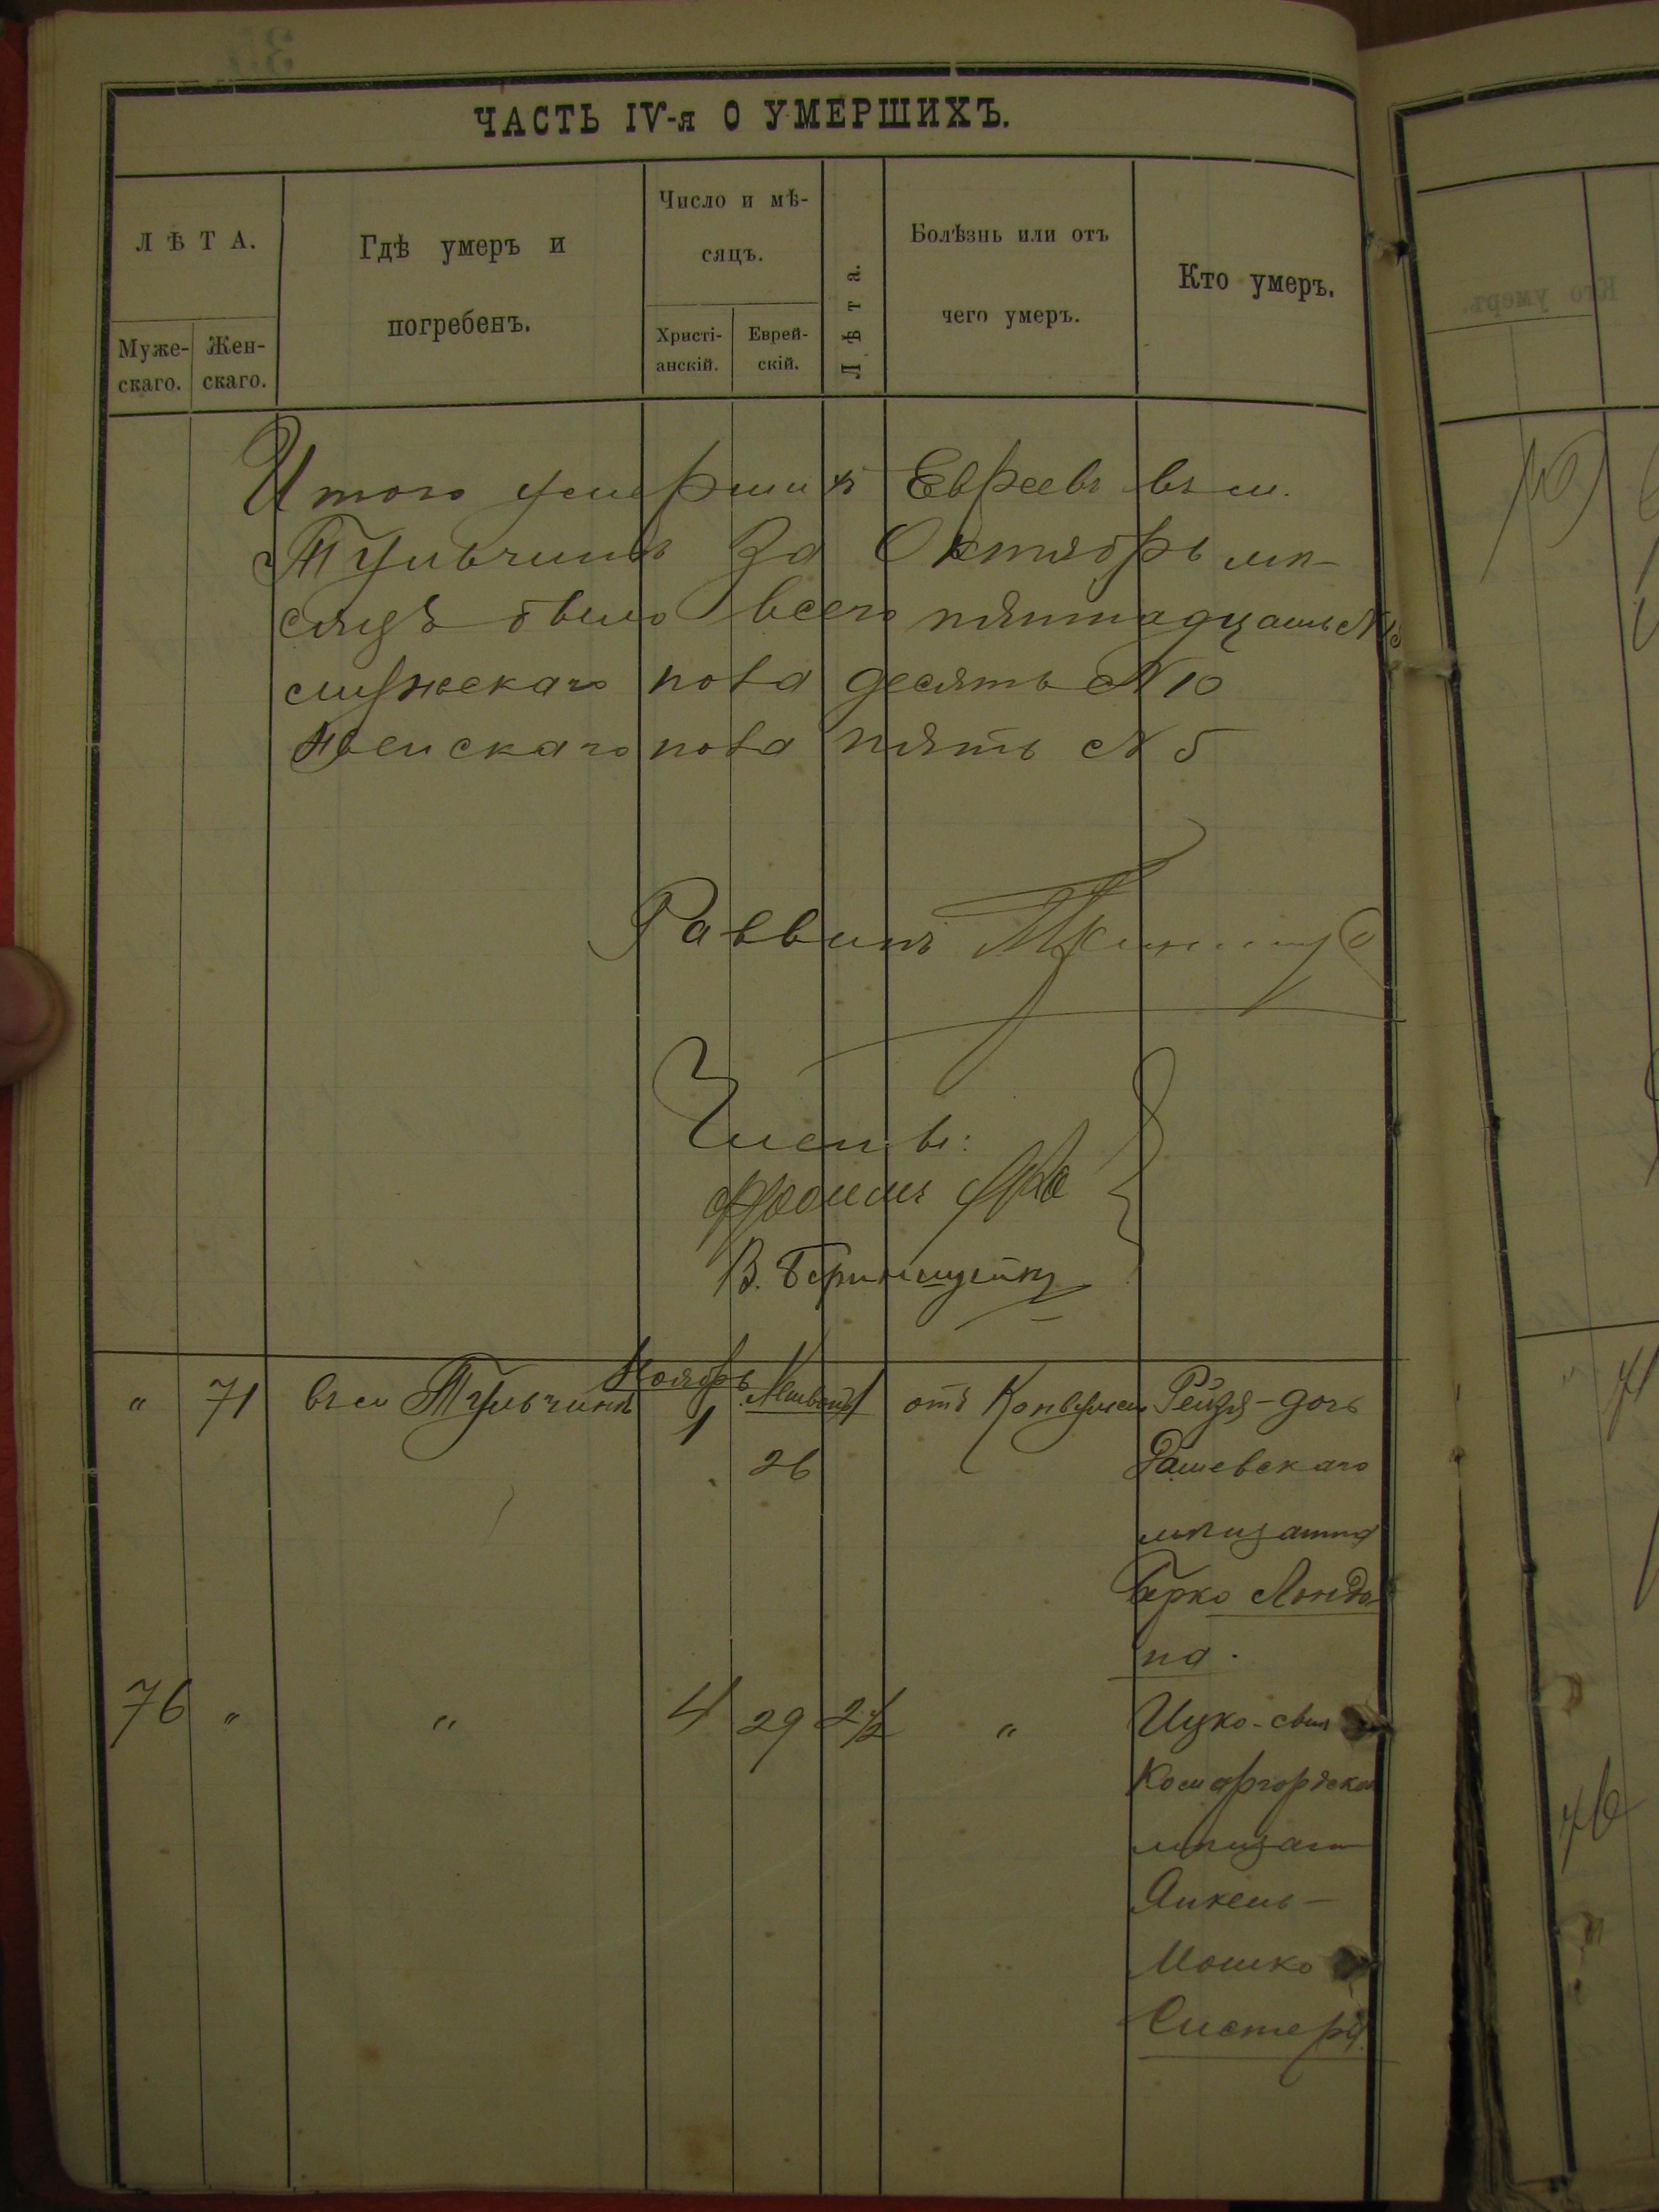 ЧАСТЬ IV-я О УМЕРШИХЪ.
ЛѢТА.
Муже-
скаго.
Жен-
скаго.
Гдѣ умеръ и
погребенъ.
Число и мѣ-
сяцъ.
Христі-
анскій.
Еврей-
скій.
Лѣта.
Болѣзнь или отъ
чего умеръ.
Кто умеръ.
Итого умершихъ Евреевъ въ м.
Тульчинѣ за Октябрь мѣ-
сяцъ было всего пятнадцать № 15
мужескаго пола десять № 10
женскаго пола пять № 5
Раввинъ
Члены:
В.
" 71 въ м Тульчинѣ Ноябрь 1 26 1 отъ Рейзя - дочь
Рашевскаго
мѣщанина
Берко Лондо-
на.
76 " " 4 29 2 1/2 " Ицко - сынъ
Комаргородскаго
мѣщан
Янкель -
Мошко
Систера